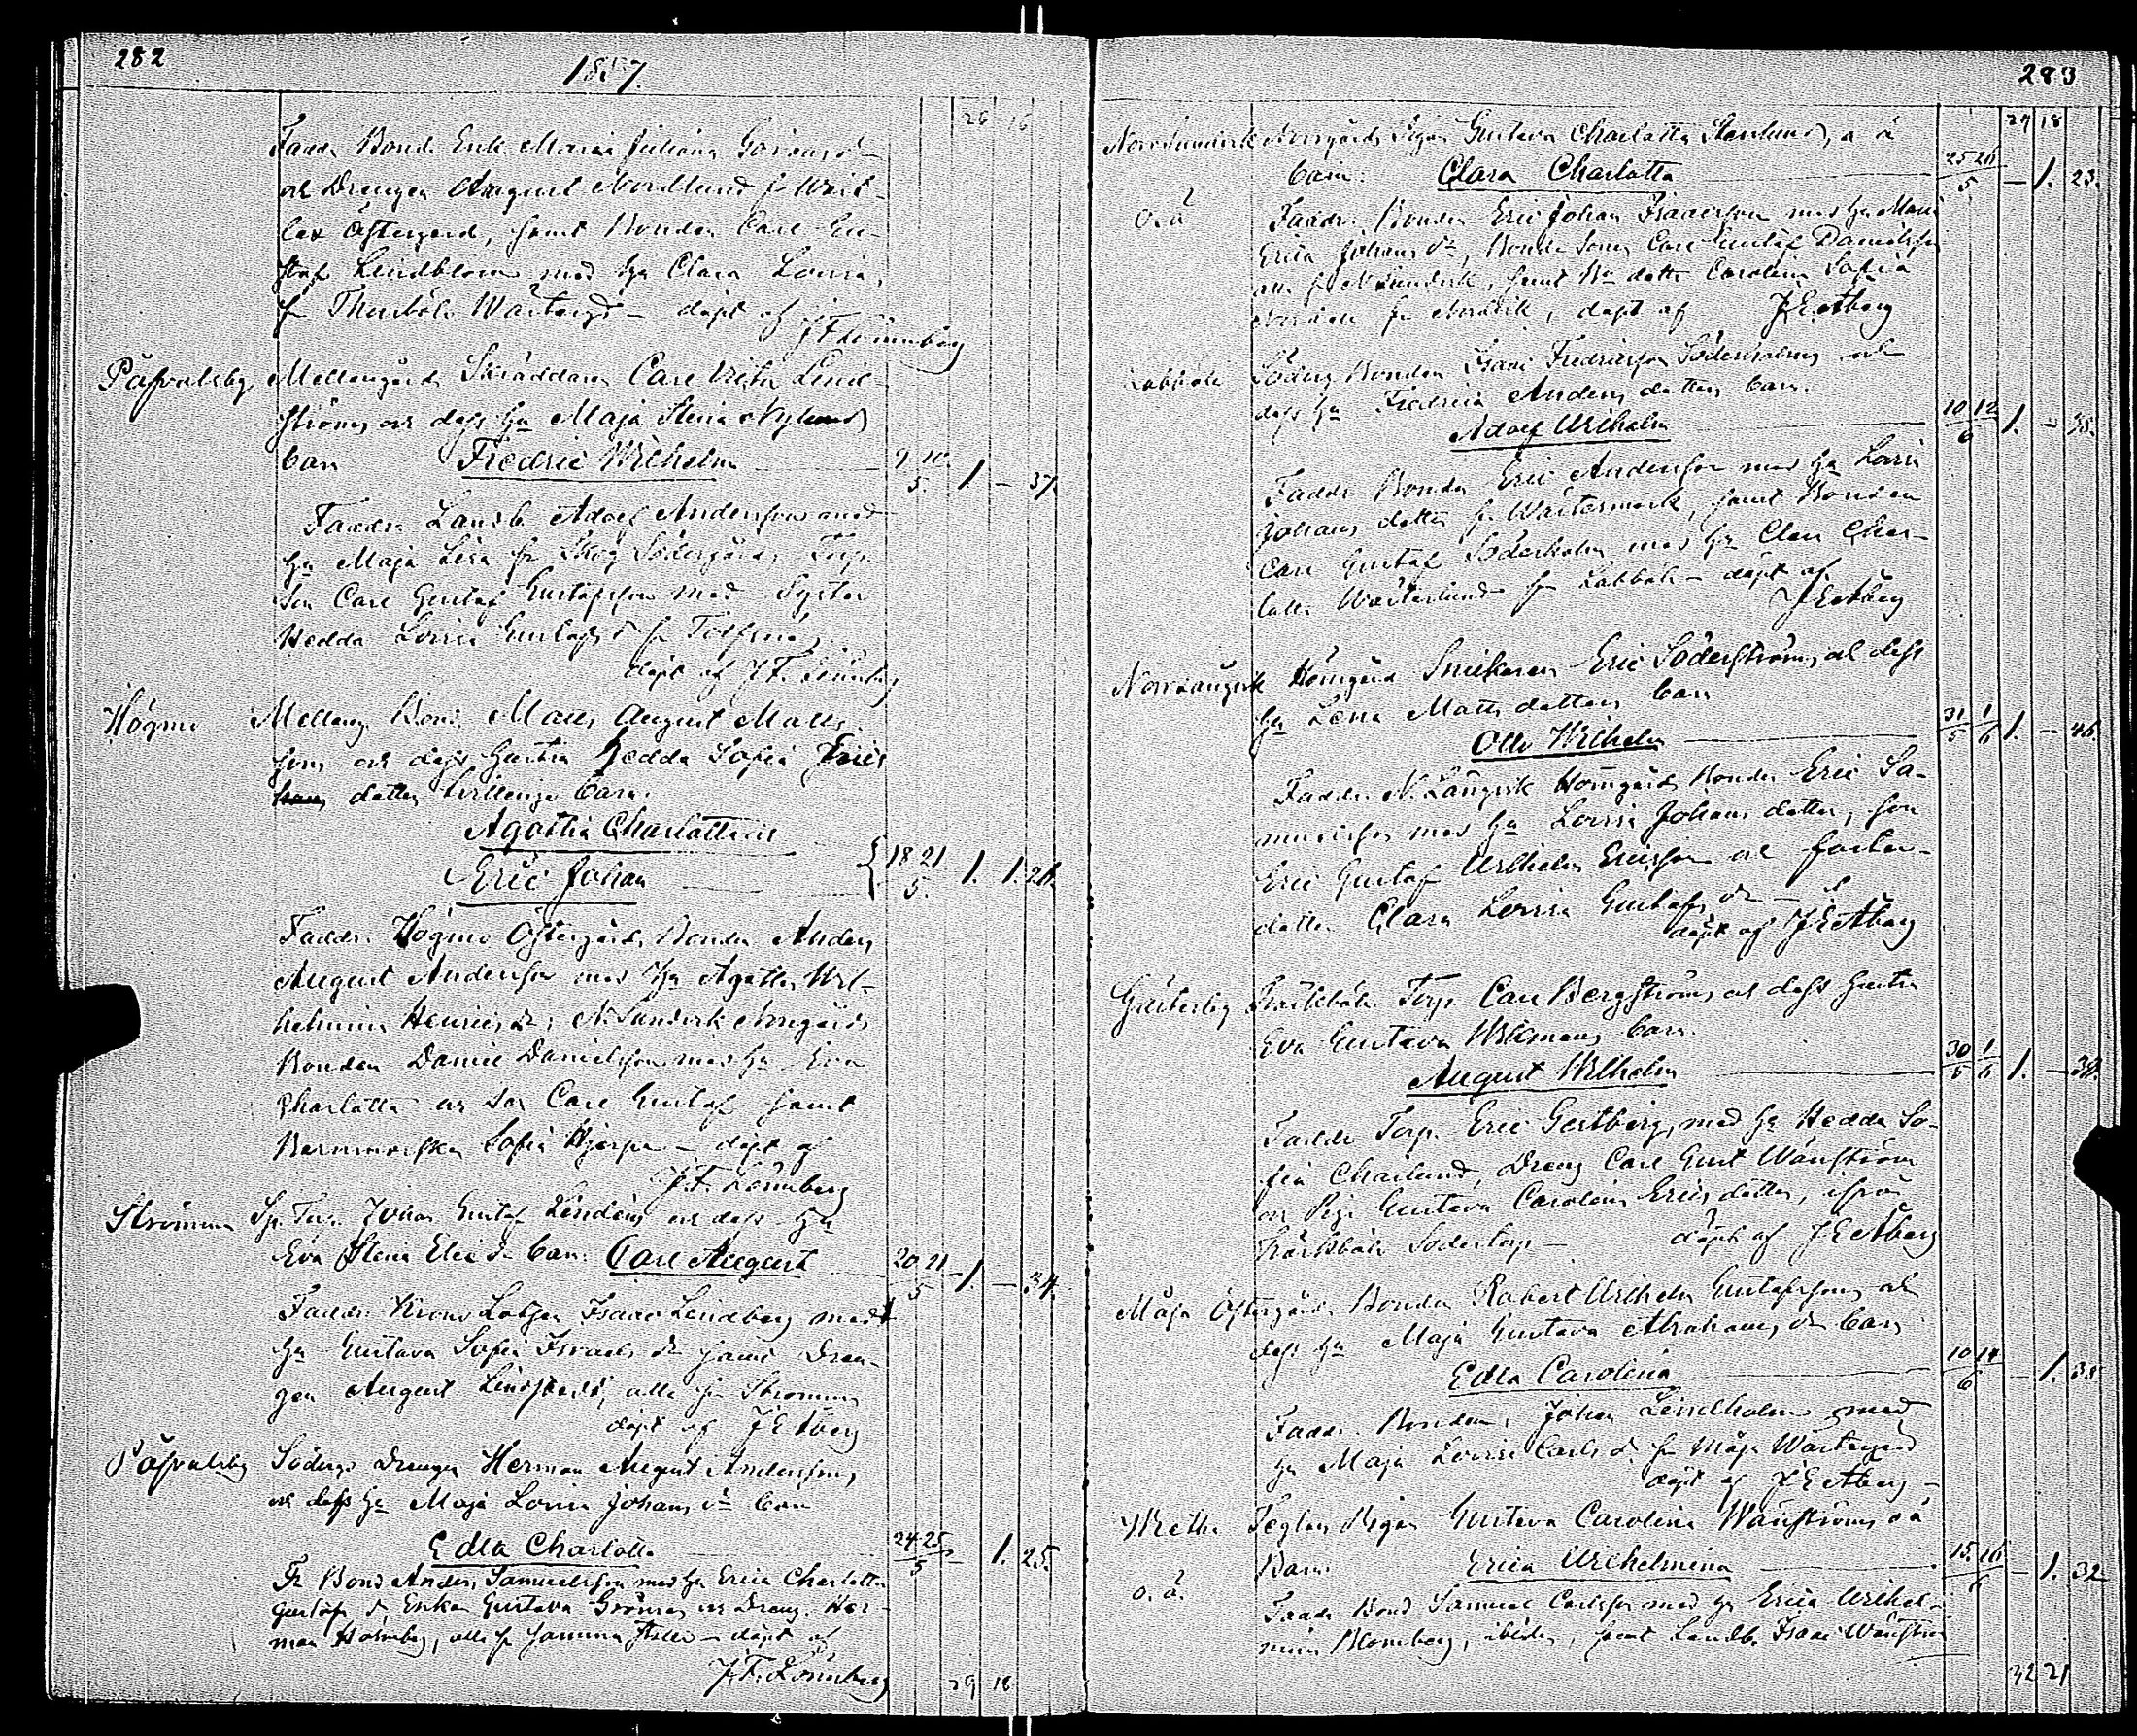 282
1857.
26 16
Faddr. Bond. Enk. Maria Juliana Görans d-
och Drengen August Nordlund fr West-
lax Östergård, samt Bonden Carl Gu-
staf Lindblom med hu Clara Lovisa,
fr Westergd - döpt af
J F Lönnberg
Påvalsby Mellangård Skräddaren Carl Victor Lind-
ström och dess hu Maja Stina Nylund
barn Fredric Wilhelm 9 10 5. 1. - 37.
Faddr. Landb. Adolf Andersson med
hu Maja Lisa fr Skog Södergård, Torp.
son Carl Gustaf Gustafsson med Syster
Hedda Lovisa Gustafs d fr Tolfsnäs
döpt af J F. Lönnberg
Högmo Mellang. Bond. Matts August Matts
son och dess hustru Hedda Sofia Erics
dotters tvillinge barn.
Agatha Charlotta och
Eric Johan 18 21 5. 1. 1. 21.
Faddr. Högmo Östergårds Bonden Anders
August Andersson med hu Agatha Wil-
helmina Henrics d; N. Sundvik Norrgårds
Bonden Daniel Danielsson med hu Eva
Charlotta och son Carl Gustaf samt
Barnmorskan Sofia Hjerpe - döpt af
J. F. Lönnberg
Strömma Sp. Torp. Johan Gustaf Lindén och dess hu
Eva Stina Elis dr barn. Carl August 20 21 5 1. - 34.
Faddr. Krono Lotsen Isaac Lindberg med
hu Gustava Sofia Israels dr samt Dren-
gen August Lindstedt, alla fr Strömma
döpt af J E Åberg
Påvalsby Söderg. Drengen Herman August Andersson,
och dess hu Maja Lovisa Johans dr barn
Edla Charlotta 24 25 5 - 1. 25.
Fr Bond Anders Samuelsson med hu Erica Charlotta
Gustafs d, Enkan Gustava Grönroos och Dreng. Her-
man Holmberg, alla fr samma ställe - döpt af
J. F. Lönnberg
29 18
283
29 18
Norrsundvik Norrgårds Pigan Gustava Charlotta Stenlund, o ä
barn. Clara Charlotta 25 26 5 - 1. 23.
o. ä Faddr. Bonden Eric Johan Isaacsson med hu Maria
Erica Johans dr, Bonde Sonen Carl Gustaf Danielsson
alla fr N Sundvik, samt Bo dotter Carolina Sofia
fr döpt af J E Åberg
Labböle Söderg Bonden Isaac Fredricsson Söderholm och
dess hu Fredrica Anders dotters barn.
Adolf Wilhelm 10 12 6 1. - 38.
Faddr Bonden Eric Andersson med hu Lovisa
Johans dotter fr Westermark, samt Bonden
Carl Gustaf Söderholm med hu Clara Char-
lotta Westerlund fr Labböle - döpt af
J E Åberg
Norrlångvik Hemgård Snickaren Eric Söderström, och dess
hu Lena Matts dotters barn
Otto Wilhelm 31 5 1 6 1. - 46.
Faddr. N. Långvik Hemgårds Bonden Eric Sa-
muelsson med hu Lovisa Johans dotter, son
Eric Gustaf Wilhelm Ericsson och foster-
dotter Clara Lovisa Gustafs dr -
döpt af J E Åberg
Torp. Carl Bergström, och dess hustru
Eva Gustava Wikmans barn.
August Wilhelm 30 5 1 6 1. - 38.
Faddr Torp. Eric Gestberg, med hu Hedda So-
fia Charlund, Dreng Carl Gust Wänström
och Piga Gustava Carolina Erics dotter, ifrån
Södertorp - döpt af J E Åberg
Måsa Östergårds Bonden Robert Wilhelm Gustafsson, och
dess hu Maja Gustava Abrahams dr barn
Edla Carolina 10 14 6 - 1. 38
Faddr. Bonden Johan Lindholm med
hu Maja Lovisa Carls d fr Måsa Westergård
döpt af J E Åberg -
Wretha Pigan Gustava Carolina Wänströms o ä
Barn Erica Wilhelmina 15. 16 6 - 1. 32
o. ä. Faddr Bond Samuel Carlsson med hu Erica Wilhel-
mina Blomberg, ibidem, samt Landb. Isaac Wänström
32 21